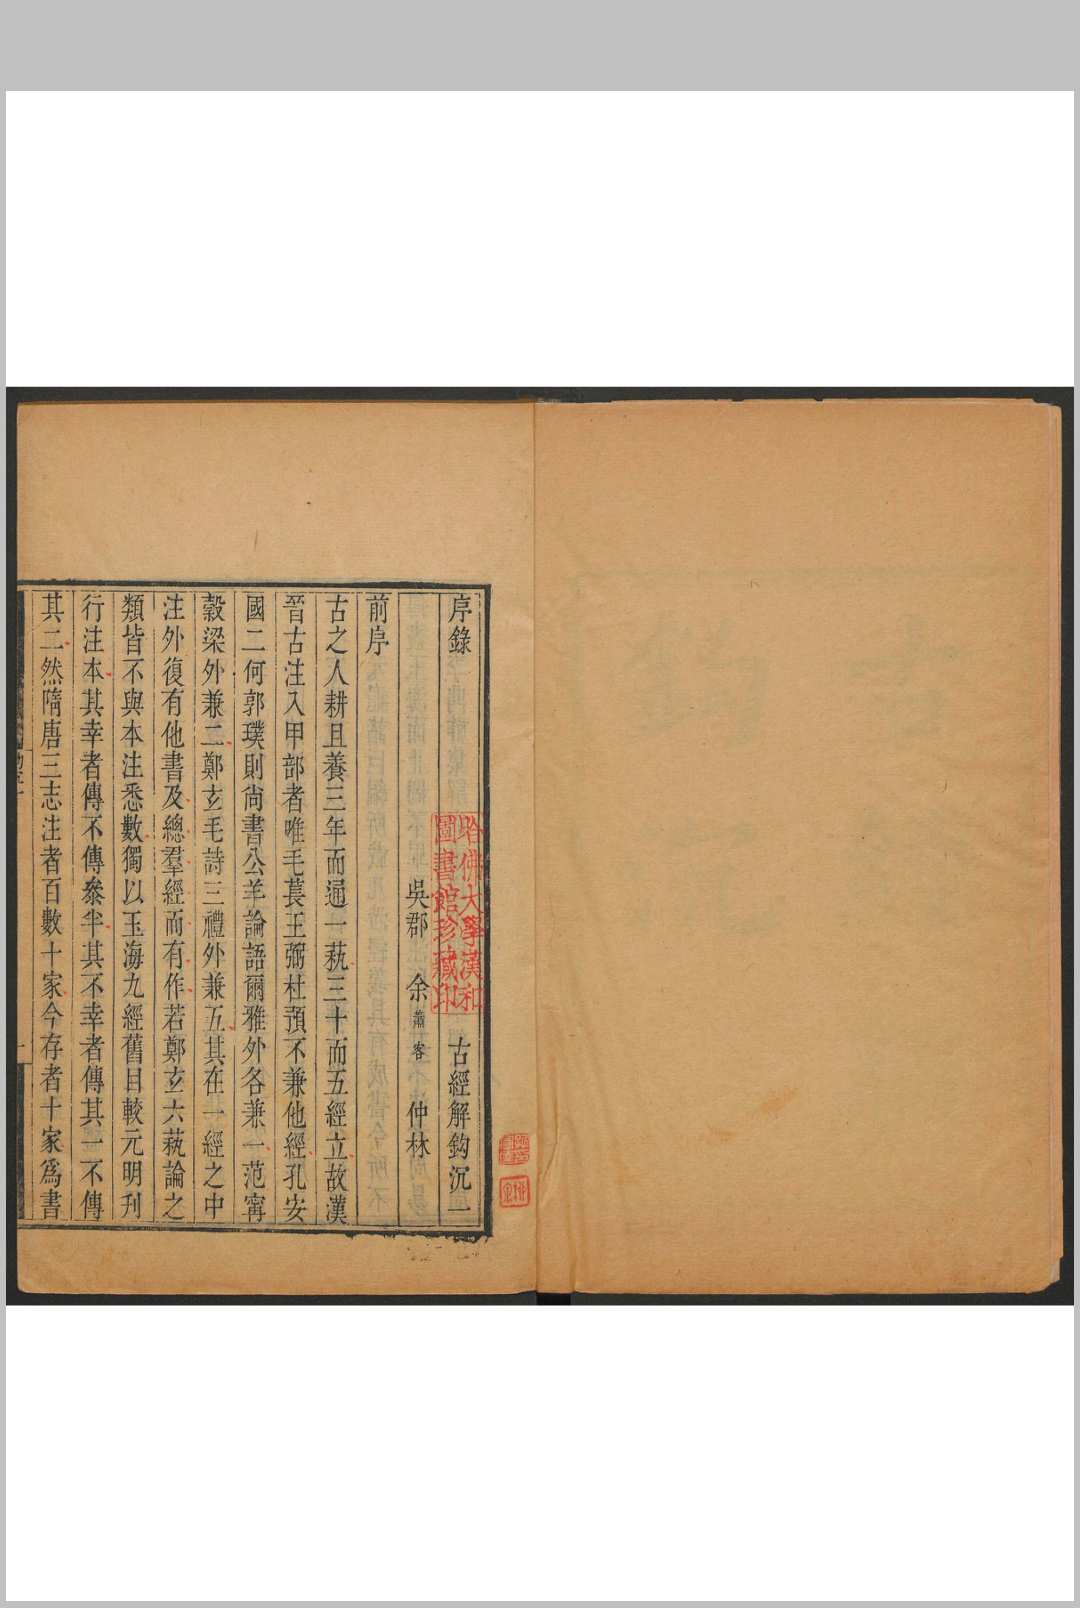 序錄 古經解鈎沉一
吳郡 余蕭客 仲林
前序
古之人耕且養三年而通一蓺三十而五經立故漢
晉古注入甲部者唯毛萇王弼杜預不兼他經孔安
國二何郭璞則尚書公羊論語爾雅外各兼一范甯
穀梁外兼二鄭玄毛詩三禮外兼五其在一經之中
注外復有他書及總羣經而有作若鄭玄六蓺論之
類皆不與本注悉數獨以玉海九經舊目較元明刊
行注本其幸者傳不傳叅半其不幸者傳其一不傳
其二然隋唐三志注者百數十家今存者十家爲書
哈佛大學漢和
圖書館珍藏印